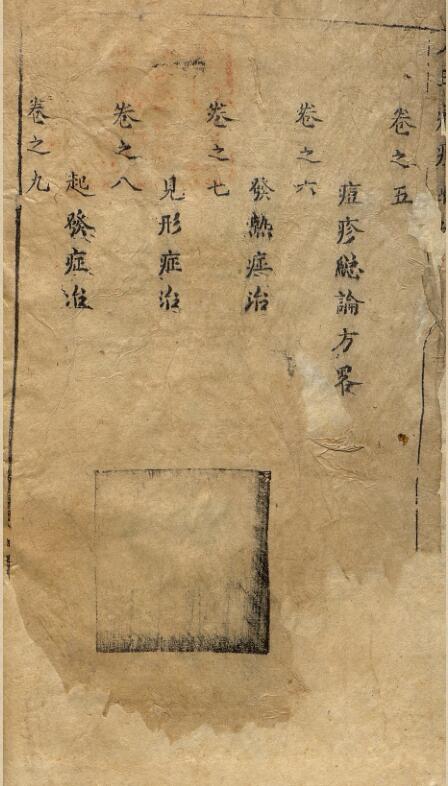 卷之五
痘疹緫論方畧
卷之六
發熱症治
卷之七
見形症治
卷之八
起發症治
卷之九